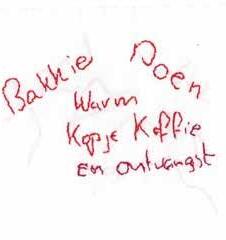 Bakkie Doen
Warm
Kopje Koffie
En ontvangst